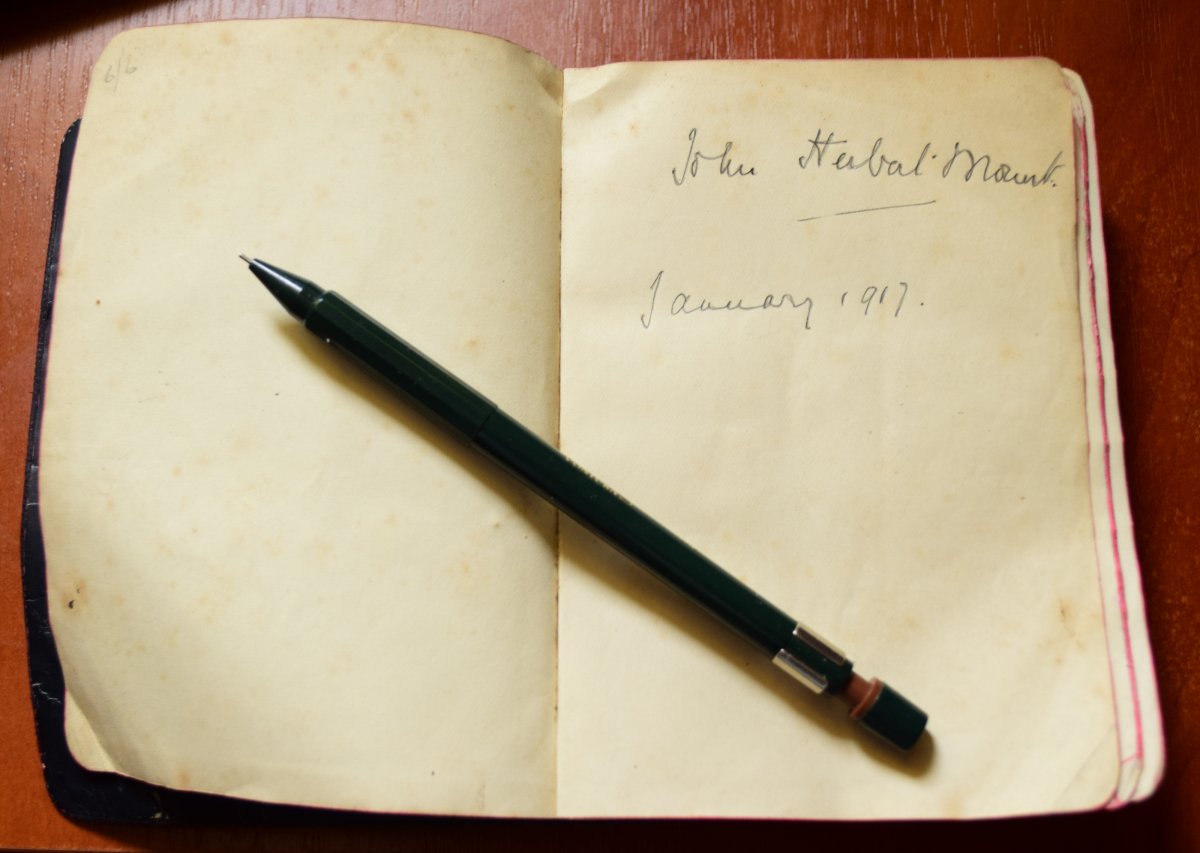 6/6
John Herbal Mount.
January 1917.